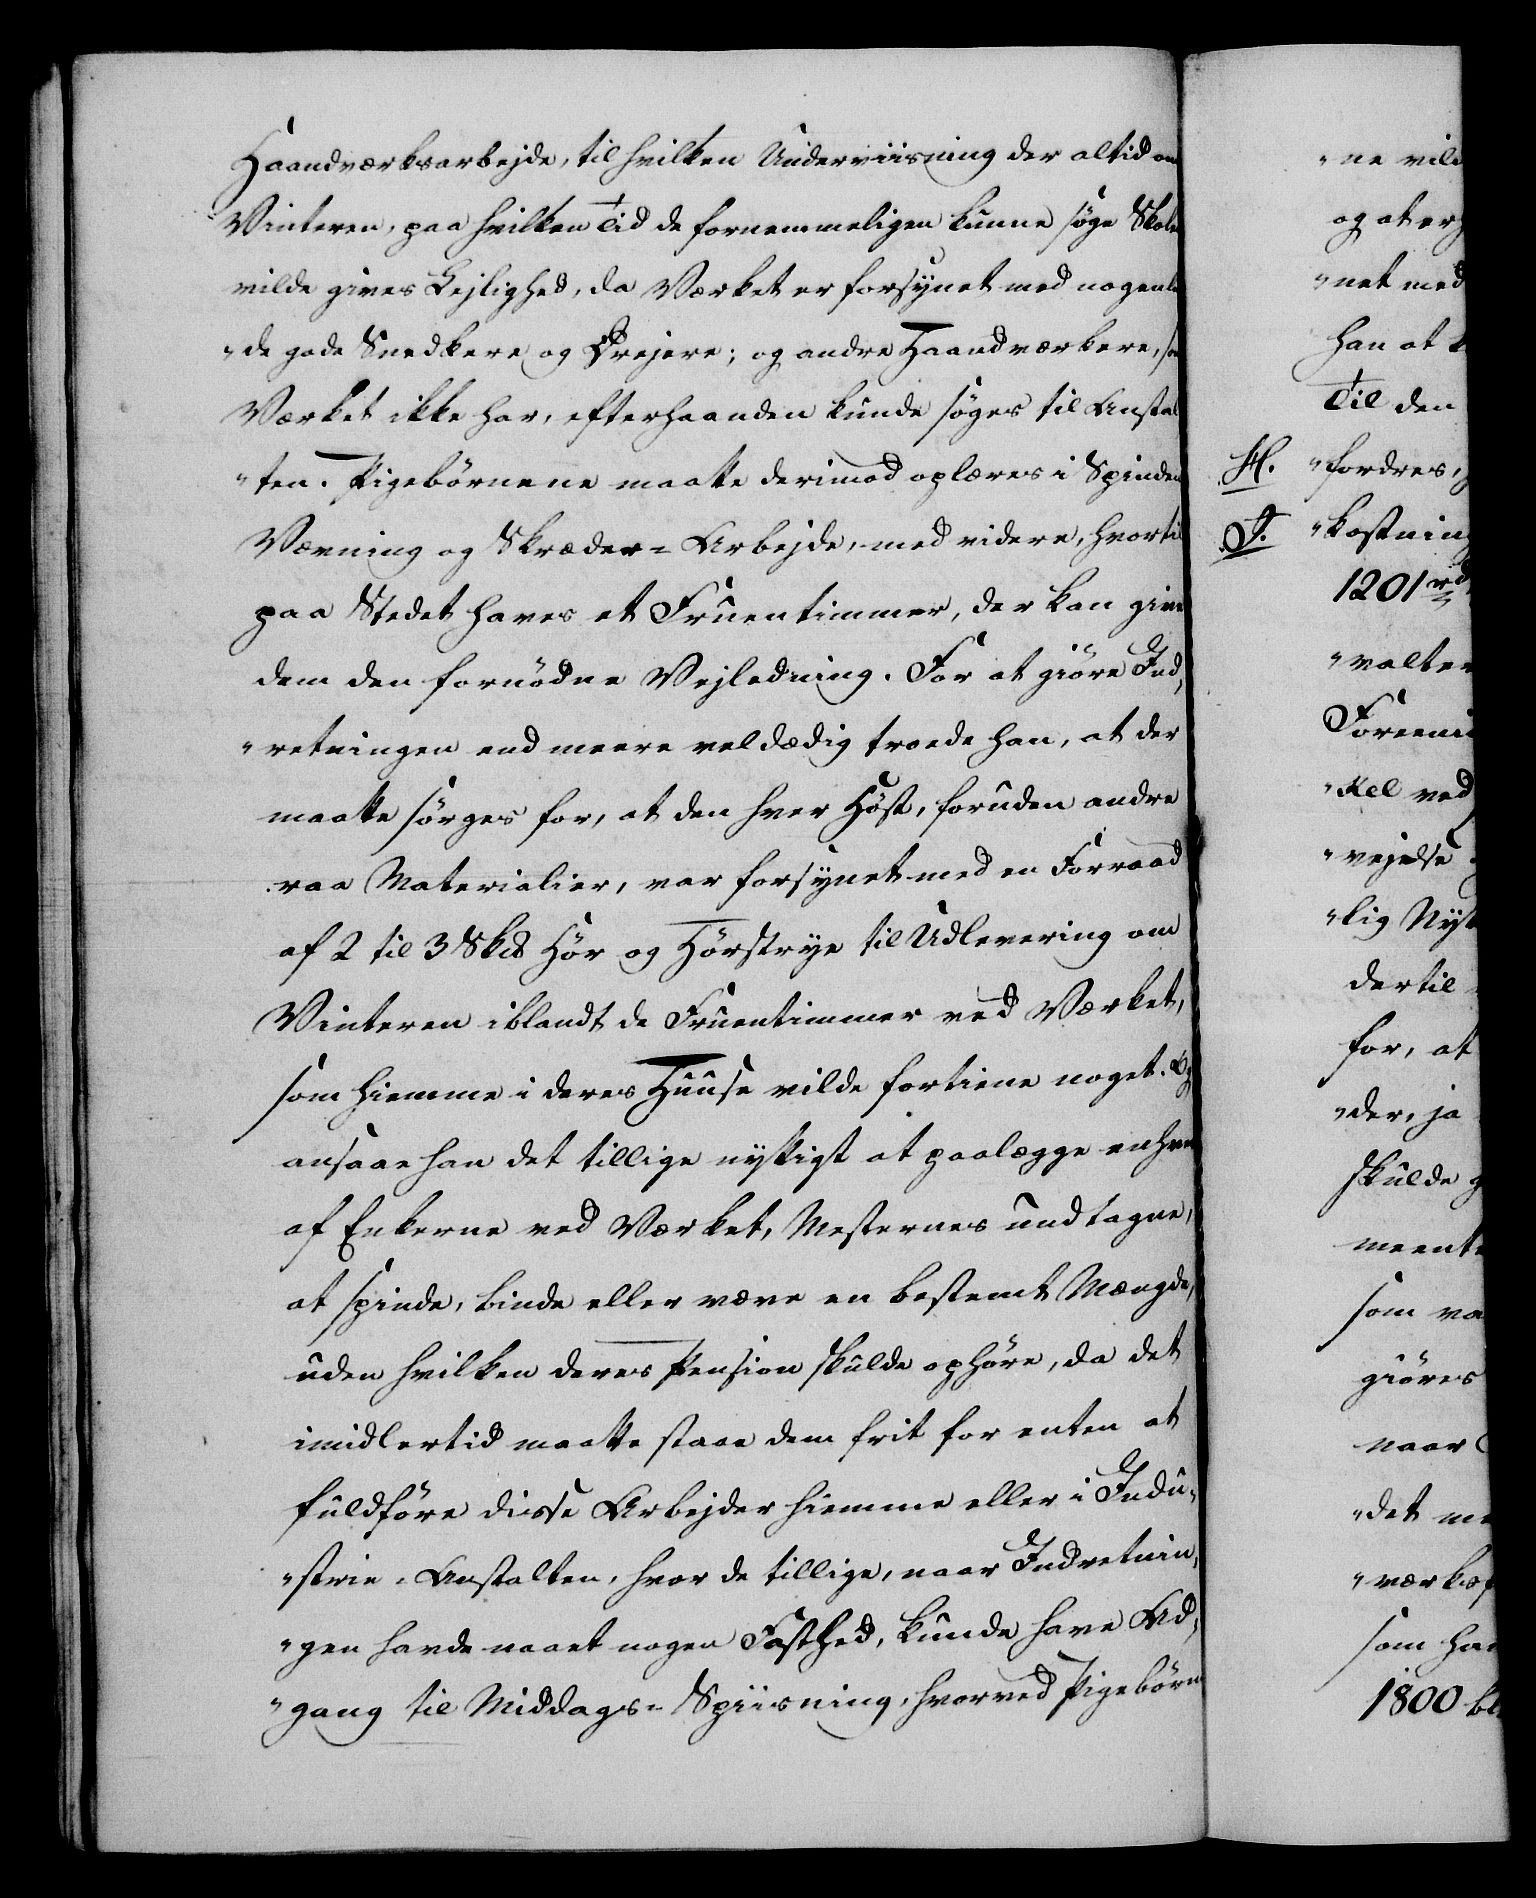 Haandværksarbejde, til hvilken Underviisning der altid om
Vinteren, paa hvilken Tid de fornemmeligen kunne søge Skole
vilde gives Lejlighed, da Værket er forsynet med nogenle
"de gode Snedkere og Drejere; og andre Haandværkere, som
Værket ikke har, efterhaanden kunde søges til Anstal
"ten. Pigebørnene maatte derimod oplæres i Spinden
Vævning og Skræder-Arbejde, med videre, hvortil
paa Stedet haves et Fruentimmer, der kan give
dem den fornødne Vejledning. For at giöre Ind,
"retningen end meere veldædig troede han, at der
maatte sörges for, at den hver Höst, foruden andre
raa Materialier, var forsynet med en Forraad
af 2 til 3 Sk℔ Hör og Hörstrye til Udlevering om
Vinteren iblandt de Fruentimmer ved Værket,
som hiemme i deres Huuse vilde fortiene noget. Og
ansaae han det tillige nyttigt at paalægge enhver
af Enkerne ved Værket, Mesternes undtagne,
at spinde, binde eller væve en bestemt Mængde,
uden hvilken deres Pension skulde ophöre, da det
imidlertid maatte staae dem frit for enten at
fuldföre disse Arbejder hiemme eller i Indu,
"strie-Anstalten, hvor de tillige, naar Indretnin,
"gen havde naaet nogen Fasthed, kunde have Ad,
"gang til Middags-Spiisning, hvorved Pigebörn
"ne vild
og at erh
"net med
han at
Til den
H. "fordres,
J. "kostning
1201 rd
"valter
Foreeni
"kel ved
"vejelse
"lig Nyt
dertil
for, at
"der, ja
skulde g
meente
som va
giöres
naar
"det me
"værksf
som ha
1800 bl